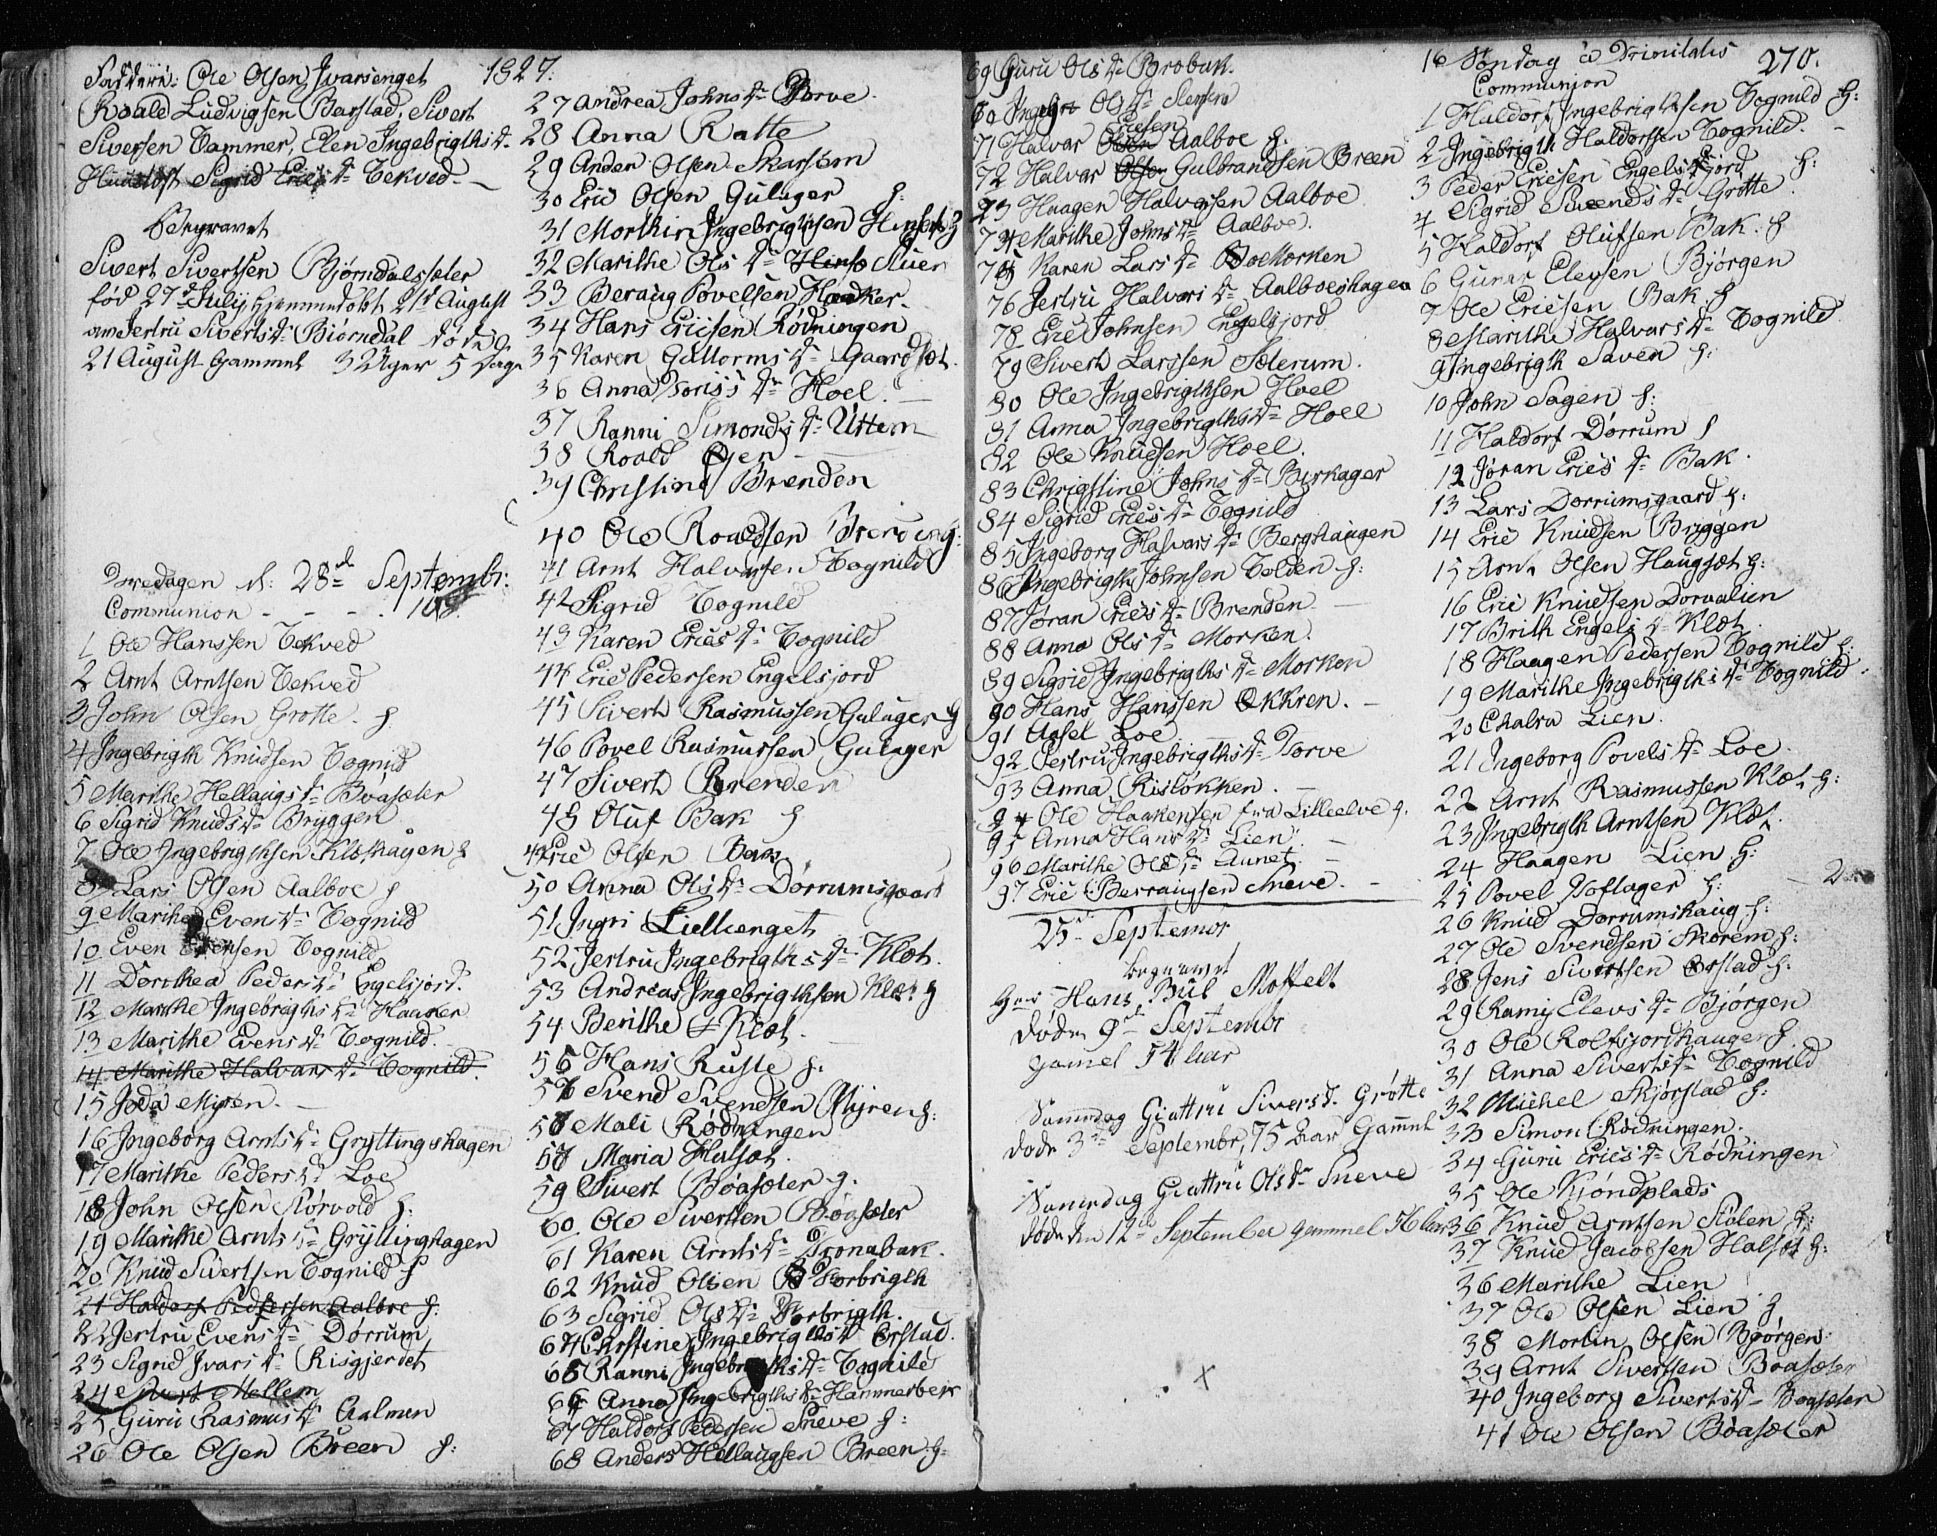 1827.
Fadderè: Ole Olsen Ivarsenget
Roald Ludvigsen Barstad, Sivert
Siversen Hammer, Elen Ingebrigths dr
Sigrid Erics dr Tekved
Begravet
Sivert Sivertsen Bjørndalssæter
fød 27d July hjemmedøbt 21d August
av Jertru Siverts dr Biørndal død
21 August Gammel 3 Uger 5 Dage
28de Septembr:
Communion - - - -
1 Ole Hanssen Tekved
2 Arnt Arntsen Tekved
3 John Olsen Grøtte. h
4 Ingebrigth Knudsen Tognild
5 Marithe Hellaugs dr Bøasæter
6 Sigrid Knuds dr Bryggen
7 Ole Ingebrigthsen Klæthagen h
8 Lars Olsen Aalboe h
9 Marithe Evens dr Tognild
10 Even Evensen Tognild
11 Dorthea Peders dr Engelsjord.
12 Marithe Ingebrigths dr Haaker
13 Marithe Evens dr Tognild.
14 Marithe Halvars dr Tognild.
15 Myren.
16 Ingeborg Arnts dr Gryttingshagen
17 Marithe Peders dr Loe
18 John Olsen Rørvold h:
19 Marithe Arnts dr Gryttinghagen
20 Knud Sivertsen Tognild h
21 Haldorf Pedersen Aalboe h:
22 Jertru Evens dr Dørrum
23 Sigrid Ivars dr Risgjerdet
24 Sivert Mellem
25 Guru Rasmus dr Aalmen
26 Ole Olsen Breen h:
27 Andrea Johns dr Torve
28 Anna Ratte
29 Anders Olsen Skarsem
30 Eric Olsen Gulager h:
31 Morthin Ingebrigthsen h
32 Marithe Ols dr
33 Beraug Povelsen Haaker
34 Hans Ericsen Rødningen
35 Karen Guttorms dr
36 Anna Joriss dr Hoel.
37 Ranni Simonds dr Uttem
38 Roald Øyen
39 Christina Brenden
40 Ole Roaldsen Brenden h:
41 Arnt Halvarsen Tognild
42 Sigrid Tognild
43 Karen Erics dr Tognild
44 Eric Pedersen Engelsjord
45 Sivert Rasmussen Gulager h
46 Povel Rasmussen Gulager
47 Sivert Brenden
48 Oluf Bak h
49 Eric Olsen
50 Anna Ols dr Dørrumsgaard
51 Ingri Lillienget
52 Jertru Ingebrigths dr Klæt.
53 Andreas Ingebrigthsen Klæt h
54 Berithe Klæt
55 Hans Ruste h:
56 Svend Svendsen Myren h:
58 Mali Rødningen
58 Maria Halset.
59 Sivert Bøasæter h.
60 Ole Sivertsen Bøasæter
61 Karen Arnts dr Bronabak.
62 Knud Olsen Horbrigth
63 Sigrid Ols dr Horbrigth.
64 Christine Ingebrigths dr Ørstad.
65 Ranni Ingebrigths dr Tognild
66 Anna Ingebrigths dr Hammerberg
67 Haldorf Pedersen Sneve h:
68 Anders Hellaugsen Breen h:
69 Guru Ols dr Brobak.
70 Ols dr
71 Halvar Ericsen Aalboe h:
72 Halvar Gulbrandsen Breen
73 Haagen Halvarsen Aalboe
74 Marithe Johns dr Aalboe.
75 Karen Lars dr
76 Jertru Halvars dr Aalboeshagen
78 Eric Johnsen Engelsjord
79 Sivert Larssen Sæterum.
80 Ole Ingebrigthsen Hoel
81 Anna Ingebrigths dr Hoel
82 Ole Knudsen Hoel.
83 Christine Johns dr Birkager
84 Sigrid Erics dr Tognild
85 Ingeborg Halvars dr Berghaugen
86 Ingebrigth Johnsen Telden h:
87 Joran Erics dr Brenden
88 Anna Ols dr Morken.
89 Sigrid Ingebrigths dr Morken
90 Hans Hanssen Økkren.
91 Assel Loe
92 Jertru Ingebrigths dr Torve
93 Anna Risløkken.
94 Ole Haakensen fra Lilleelve h.
95 Anna Hans dr Lien.
96 Marithe Ols dr Aunet.
97 Eric Berraugsen Sneve.
25de Septemer
begravet
Hans Bul Moffelt
døde 9de Septembr
gamel 54 aar
Samedag Giattru Sivers d. Grøtte
døde 3de Septembr, 75 aar Gammel
Samedag Giattru Ols dr Sneve
døde den 12te September gammel 56 aar
16 Søndag a Trinitatis 270.
Communion
1 Haldorf Ingebrigthsen Tognild h:
2 Ingebrigth Haldorssen Tognild.
3 Peder Ericsen Engelsjord h:
4 Sigrid Svends dr Grøtte
5 Haldorf Olufsen Bak. h
6 Gunar Elevsen Bjørgen
7 Ole Ericsen Bak. h
8 Marithe Halvars dr Tognild
9 Ingebrigth Saven h:
10 John Sagen h:
11 Haldorf Dørrum h
12 Joran Erics dr Bak.
13 Lars Dørrumsgaard h:
14 Eric Knudsen Bryggen
15 Arnt Olsen Haugset h:
16 Eric Knudsen Dorvalien
17 Brith Engels dr Klæt
18 Haagen Pedersen Tognild h:
19 Marithe Ingebrigths dr Tognild
20 Lien.
21 Ingeborg Povels dr Loe
22 Arnt Rasmussen Klæt h:
23 Ingebrigth Arntsen Klæt.
24 Haagen Lien h:
25 Povel Toflager h:
26 Knud Dørrumshaug h:
27 Ole Svendsen Skorem h:
28 Jens Sivertsen Ørstad h:
29 Elevs dr Bjørgen
30 Ole Rolfsjordhaugen h
31 Anna Siverts dr Tognild
32 Michel Skjørstad h:
33 Simon Rødningen.
34 Guru Erics dr Rødningen
35 Ole Kjøndplads
36 Knud Arntsen Stølen h:
37 Knud Jacobsen Halset h:
36 Marithe Lien
37 Ole Olsen Lien h
38 Mortin Olsen Bjørgen
39 Arnt Sivertsen Bøasæter
40 Ingeborg Siverts dr Bøasæter
41 Ole Olsen Bøasæter